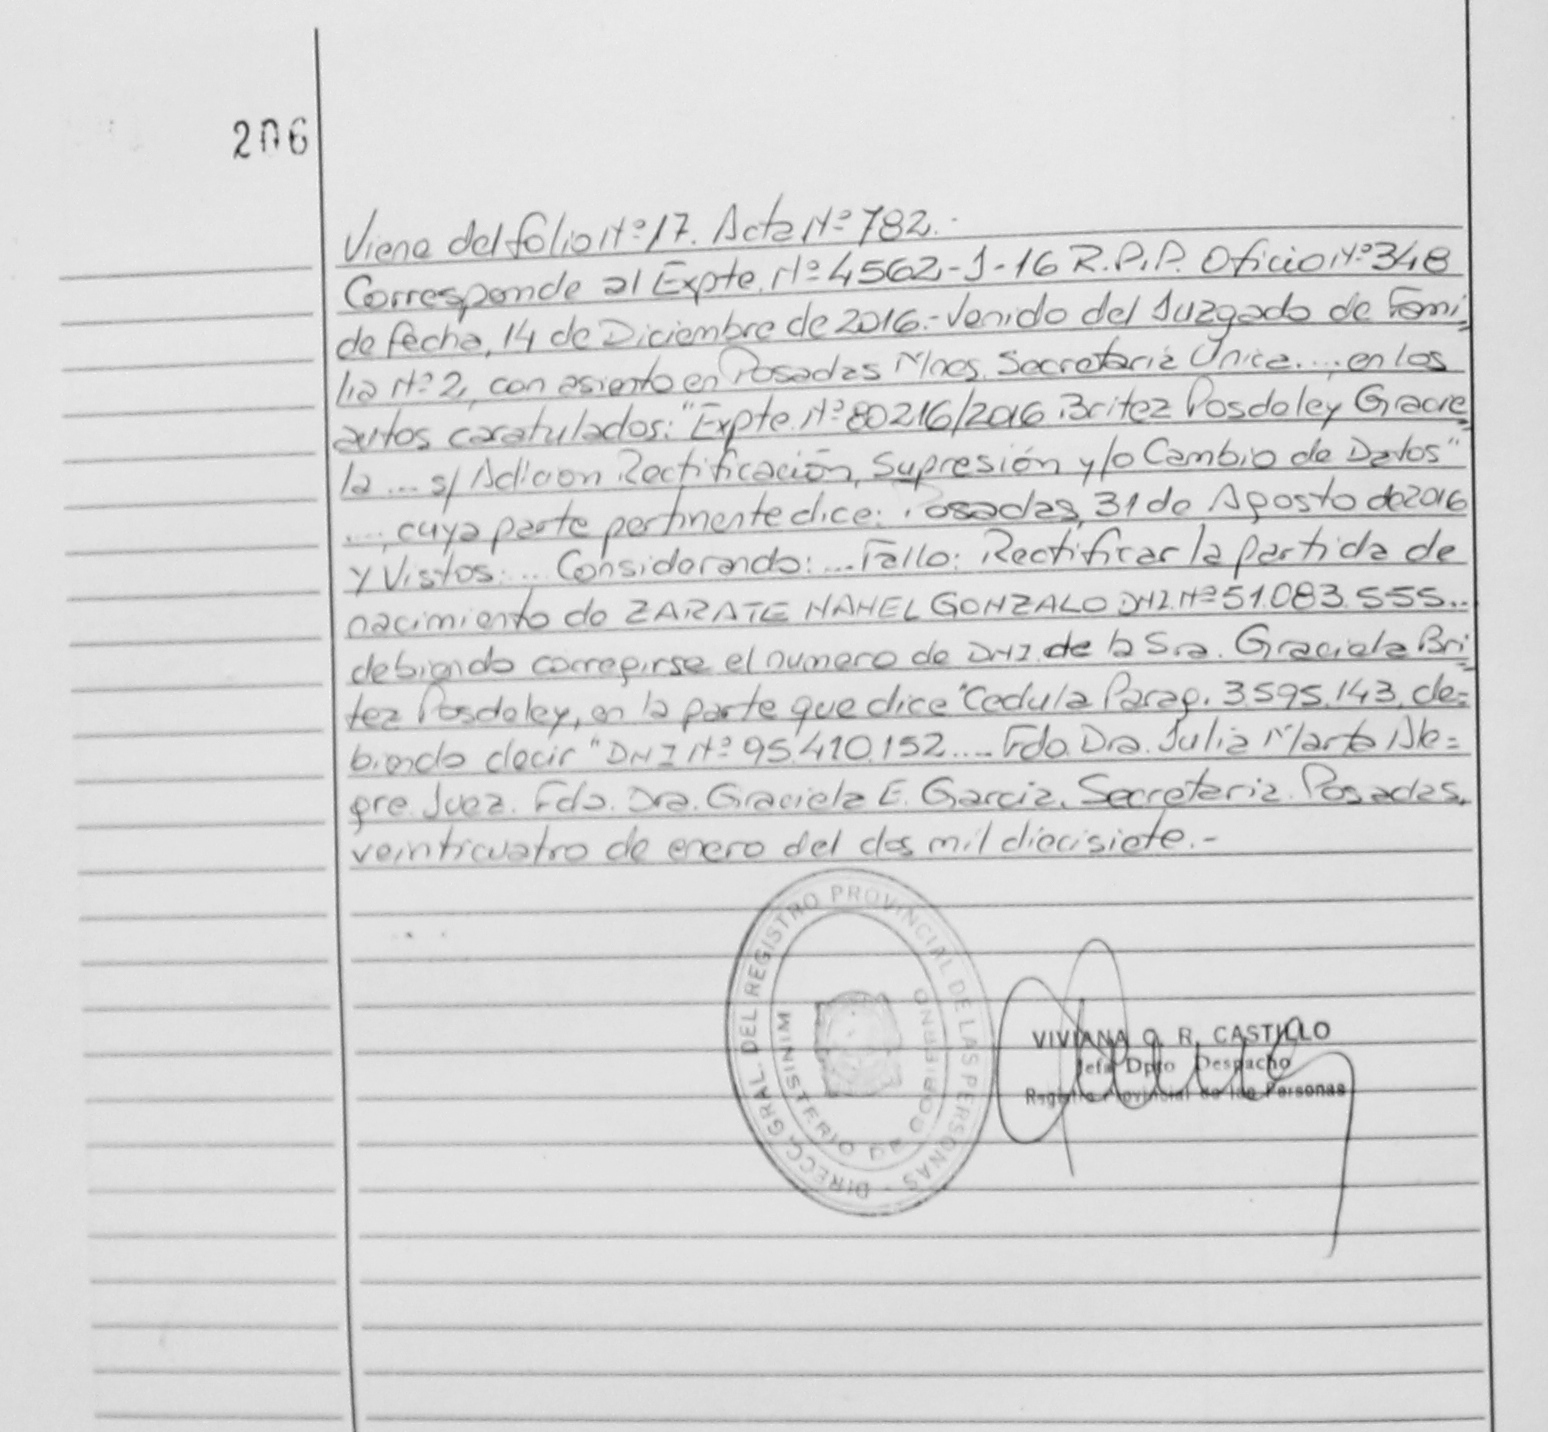 206
Viene del folio Nº 17. Acta Nº 782.-
Corresponde al Expte. Nº 4562-J-16 R.P.P. Oficio Nº 348
de fecha, 14 de Diciembre de 2016.- Venido del Juzgado de Fami=
lia Nº 2, con asiento en Posadas Mnes. Secretaria Unica...., en los
autos caratulados: "Expte. Nº 80216/2016 Britez Posdeley Gracie
la ... s/ Adicion Rectificación, Supresión y/o Cambio de Datos"
...., cuya parte pertinente dice: Posadas, 31 de Agosto de 2016
Y Vistos: ... Considerando: ... Fallo: Rectificar la partida de
nacimiento de ZARATE NAHEL GONZALO DNI. Nº 51.083.555..
debiendo corregirse el numero de DNI. de la Sra. Graciela Bri=
tez Posdeley, en la parte que dice "Cedula Parag. 3.595.143, de=
biendo decir "DNI Nº 95.410.152.... Fdo. Dra. Julia Marta Ale=
gre. Juez. Fdo. Dra. Graciela E. Garcia. Secretaria. Posadas,
veinticuatro de enero del dos mil diecisiete.-
DIRECC. GRAL. DEL REGISTRO PROVINCIAL DE LAS PERSONAS -
MINISTERIO DE GOBIERNO
VIVIANA R. CASTILLO
Jefa Dpto Despacho
Registro Provincial de las Personas